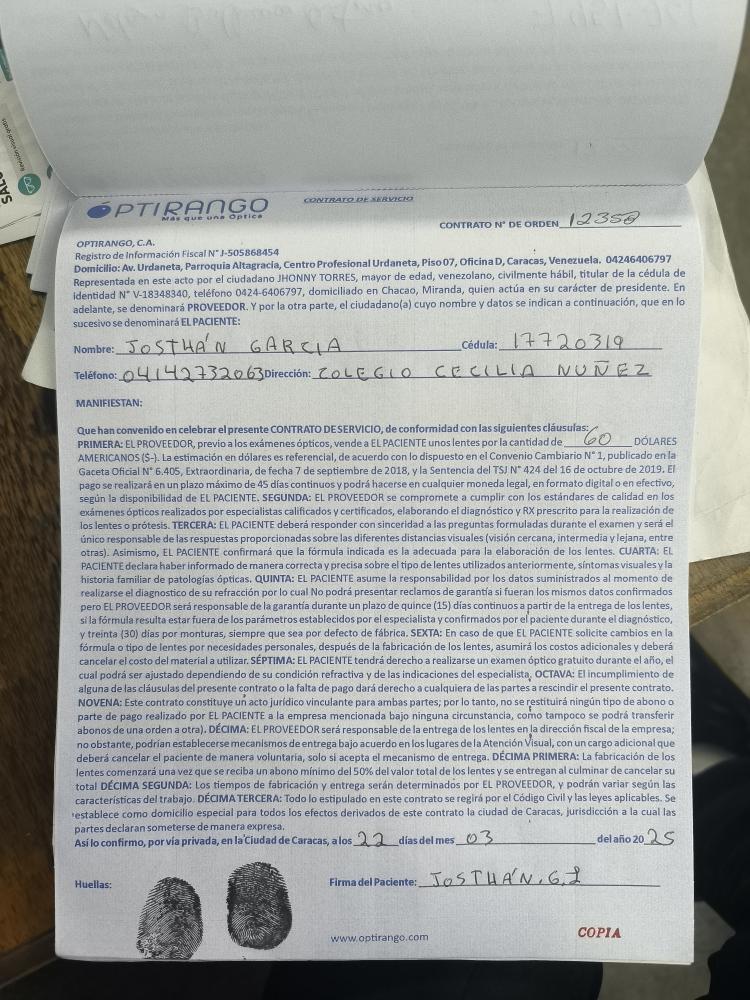 OPTIRANGO
Más que una Óptica
CONTRATO DE SERVICIO
CONTRATO N° DE ORDEN 12350
OPTIRANGO, C.A.
Registro de Información Fiscal N° J-505868454
Domicilio: Av. Urdaneta, Parroquia Altagracia, Centro Profesional Urdaneta, Piso 07, Oficina D, Caracas, Venezuela. 04246406797
Representada en este acto por el ciudadano JHONNY TORRES, mayor de edad, venezolano, civilmente hábil, titular de la cédula de
Identidad N° V-18348340, teléfono 0424-6406797, domiciliado en Chacao, Miranda, quien actúa en su carácter de presidente. En
adelante, se denominará PROVEEDOR. Y por la otra parte, el ciudadano(a) cuyo nombre y datos se indican a continuación, que en lo
sucesivo se denominará EL PACIENTE:
Nombre: JOSTHÁN GARCIA Cédula: 17720319
Teléfono: 04142732063 Dirección: COLEGIO CECILIA NUÑEZ
MANIFIESTAN:
Que han convenido en celebrar el presente CONTRATO DE SERVICIO, de conformidad con las siguientes cláusulas:
PRIMERA: EL PROVEEDOR, previo a los exámenes ópticos, vende a EL PACIENTE unos lentes por la cantidad de 60 DÓLARES
AMERICANOS (S-). La estimación en dólares es referencial, de acuerdo con lo dispuesto en el Convenio Cambiario N° 1, publicado en la
Gaceta Oficial N° 6.405, Extraordinaria, de fecha 7 de septiembre de 2018, y la Sentencia del TSJ N° 424 del 16 de octubre de 2019. El
pago se realizará en un plazo máximo de 45 días continuos y podrá hacerse en cualquier moneda legal, en formato digital o en efectivo,
según la disponibilidad de EL PACIENTE. SEGUNDA: EL PROVEEDOR se compromete a cumplir con los estándares de calidad en los
exámenes ópticos realizados por especialistas calificados y certificados, elaborando el diagnóstico y RX prescrito para la realización de
los lentes o prótesis. TERCERA: EL PACIENTE deberá responder con sinceridad a las preguntas formuladas durante el examen y será el
único responsable de las respuestas proporcionadas sobre las diferentes distancias visuales (visión cercana, intermedia y lejana, entre
otras). Asimismo, EL PACIENTE confirmará que la fórmula indicada es la adecuada para la elaboración de los lentes. CUARTA: EL
PACIENTE declara haber informado de manera correcta y precisa sobre el tipo de lentes utilizados anteriormente, síntomas visuales y la
historia familiar de patologías ópticas. QUINTA: EL PACIENTE asume la responsabilidad por los datos suministrados al momento de
realizarse el diagnostico de su refracción por lo cual No podrá presentar reclamos de garantía si fueran los mismos datos confirmados
pero EL PROVEEDOR será responsable de la garantía durante un plazo de quince (15) días continuos a partir de la entrega de los lentes,
si la fórmula resulta estar fuera de los parámetros establecidos por el especialista y confirmados por el paciente durante el diagnóstico,
y treinta (30) días por monturas, siempre que sea por defecto de fábrica. SEXTA: En caso de que EL PACIENTE solicite cambios en la
fórmula o tipo de lentes por necesidades personales, después de la fabricación de los lentes, asumirá los costos adicionales y deberá
cancelar el costo del material a utilizar. SÉPTIMA: EL PACIENTE tendrá derecho a realizarse un examen óptico gratuito durante el año, el
cual podrá ser ajustado dependiendo de su condición refractiva y de las indicaciones del especialista. OCTAVA: El incumplimiento de
alguna de las cláusulas del presente contrato o la falta de pago dará derecho a cualquiera de las partes a rescindir el presente contrato.
NOVENA: Este contrato constituye un acto jurídico vinculante para ambas partes; por lo tanto, no se restituirá ningún tipo de abono o
parte de pago realizado por EL PACIENTE a la empresa mencionada bajo ninguna circunstancia, como tampoco se podrá transferir
abonos de una orden a otra). DÉCIMA: EL PROVEEDOR será responsable de la entrega de los lentes en la dirección fiscal de la empresa;
no obstante, podrían establecerse mecanismos de entrega bajo acuerdo en los lugares de la Atención Visual, con un cargo adicional que
deberá cancelar el paciente de manera voluntaria, solo si acepta el mecanismo de entrega. DÉCIMA PRIMERA: La fabricación de los
lentes comenzará una vez que se reciba un abono mínimo del 50% del valor total de los lentes y se entregan al culminar de cancelar su
total DÉCIMA SEGUNDA: Los tiempos de fabricación y entrega serán determinados por EL PROVEEDOR, y podrán variar según las
características del trabajo. DÉCIMA TERCERA: Todo lo estipulado en este contrato se regirá por el Código Civil y las leyes aplicables. Se
establece como domicilio especial para todos los efectos derivados de este contrato la ciudad de Caracas, jurisdicción a la cual las
partes declaran someterse de manera expresa.
Así lo confirmo, por vía privada, en la Ciudad de Caracas, a los 22 días del mes 03 del año 2025
Huellas:
Firma del Paciente: JOSTHÁN. G. L
www.optirango.com
COPIA